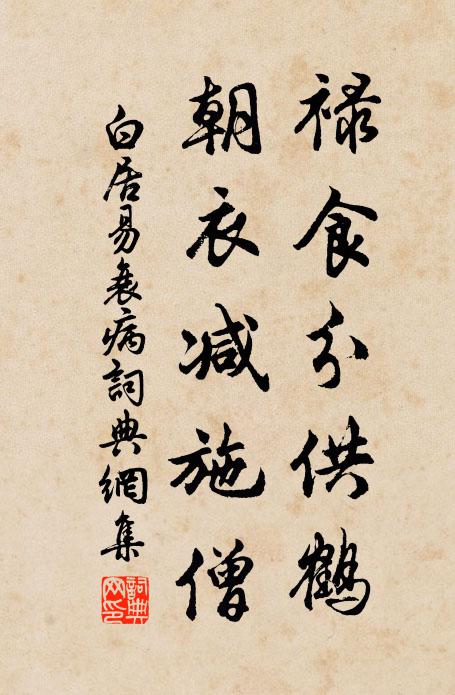 禄食分供鶴
朝衣减施僧
白居易衰病詞典網集
詞典網印